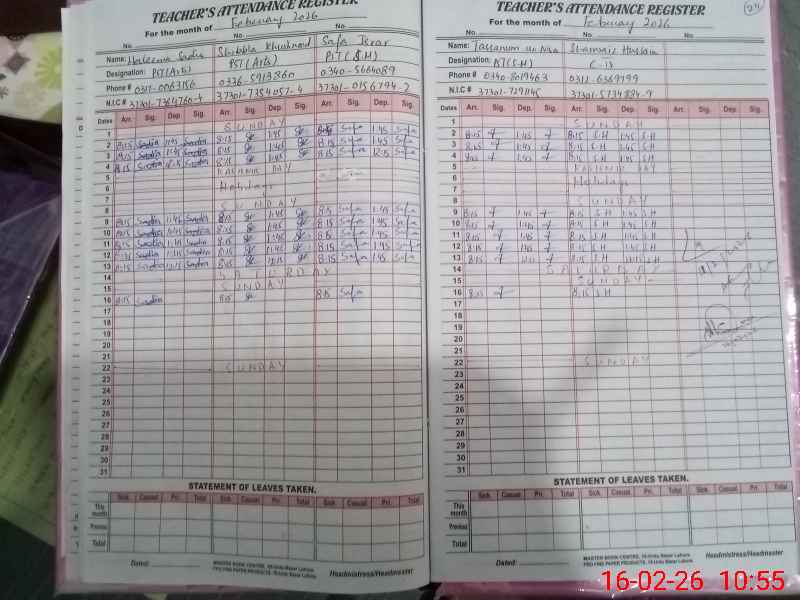 TEACHER'S ATTENDANCE REGISTER
For the month of February 2026
No. No. No.
Name: Haleema Sadia Shibbla Khushnod Safa Israr
Designation: PST(A1B) PST(A1B) PST(S.H)
Phone # 0347-0063156 0336-5913860 0340-5664089
N.I.C # 37301-7354057-4 37301-0156794-2
Dates Arr. Sig. Dep. Sig. Arr. Sig. Dep. Sig. Arr. Sig. Dep. Sig.
1 SUNDAY
2 8:15 Sadia 1:45 Sadia 8:15 1:45 Safa 1:45 Safa
3 8:15 Sadia 1:45 Sadia 8:15 1:45 8:15 Safa 1:45 Safa
4 8:15 Sadia Sadia 8:15 1:45 8:15 Safa 12:15 Safa
5 KASHMIR DAY
6 Holiday
7
8 SUNDAY
9 8:15 Sadia 1:45 Sadia 8:15 1:45 8:15 Safa 1:45 Safa
10 8:15 Sadia 1:45 Sadia 8:15 1:45 8:15 Safa 1:45 Safa
11 8:15 Sadia 1:45 Sadia 8:15 1:45 8:15 Safa 1:45 Safa
12 8:15 Sadia Sadia 8:15 1:45 8:15 Safa 1:45 Safa
13 8:15 Sadia 12:15 Sadia 8:15 12:15 8:15 Safa Safa
14 SATURDAY
15 SUNDAY
16 8:15 Sadia 8:15 8:15 Safa
17
18
19
20
21
22 SUNDAY
23
24
25
26
27
28
29
30
31
STATEMENT OF LEAVES TAKEN.
Sick. Casual Pri. Total Sick. Casual Pri. Total Sick. Casual Pri. Total
This month
Previous
Total
Dated:
MASTER BOOK CENTRE, 19-Urdu Bazar Lahore
PRO.FINE PAPER PRODUCTS, 16-Urdu Bazar Lahore
Headmistress/Headmaster
TEACHER'S ATTENDANCE REGISTER
For the month of February 2026
No. No. No.
Name: Tassanum un Nisa Shamaiz Hussain
Designation: PST(S.H) C-iv
Phone # 0340-8019663 0312-6369199
N.I.C # 37301-5734884-9
Dates Arr. Sig. Dep. Sig. Arr. Sig. Dep. Sig. Arr. Sig. Dep. Sig.
1 SUNDAY
2 8:15 1:45 8:15 S.H 1:45 S.H
3 8:15 1:45 8:15 S.H 1:45 S.H
4 8:15 1:45 8:15 S.H 1:45 S.H
5 KASHMIR DAY
6 Holiday
7
8 SUNDAY
9 8:15 1:45 8:15 S.H 1:45 S.H
10 8:15 1:45 8:15 S.H 1:45 S.H
11 8:15 1:45 8:15 S.H 1:45 S.H
12 8:15 1:45 8:15 S.H 1:45 S.H
13 8:15 8:15 S.H S.H
14 SATURDAY
15 SUNDAY
16 8:15 8:15 S.H
17
18
19
20
21
22 SUNDAY
23
24
25
26
27
28
29
30
31
STATEMENT OF LEAVES TAKEN.
Sick. Casual Pri. Total Sick. Casual Pri. Total Sick. Casual Pri. Total
This month
Previous
Total
Dated:
MASTER BOOK CENTRE, 19-Urdu Bazar Lahore
PRO.FINE PAPER PRODUCTS, 16-Urdu Bazar Lahore
Headmistress/Headmaster
16-02-26 10:55